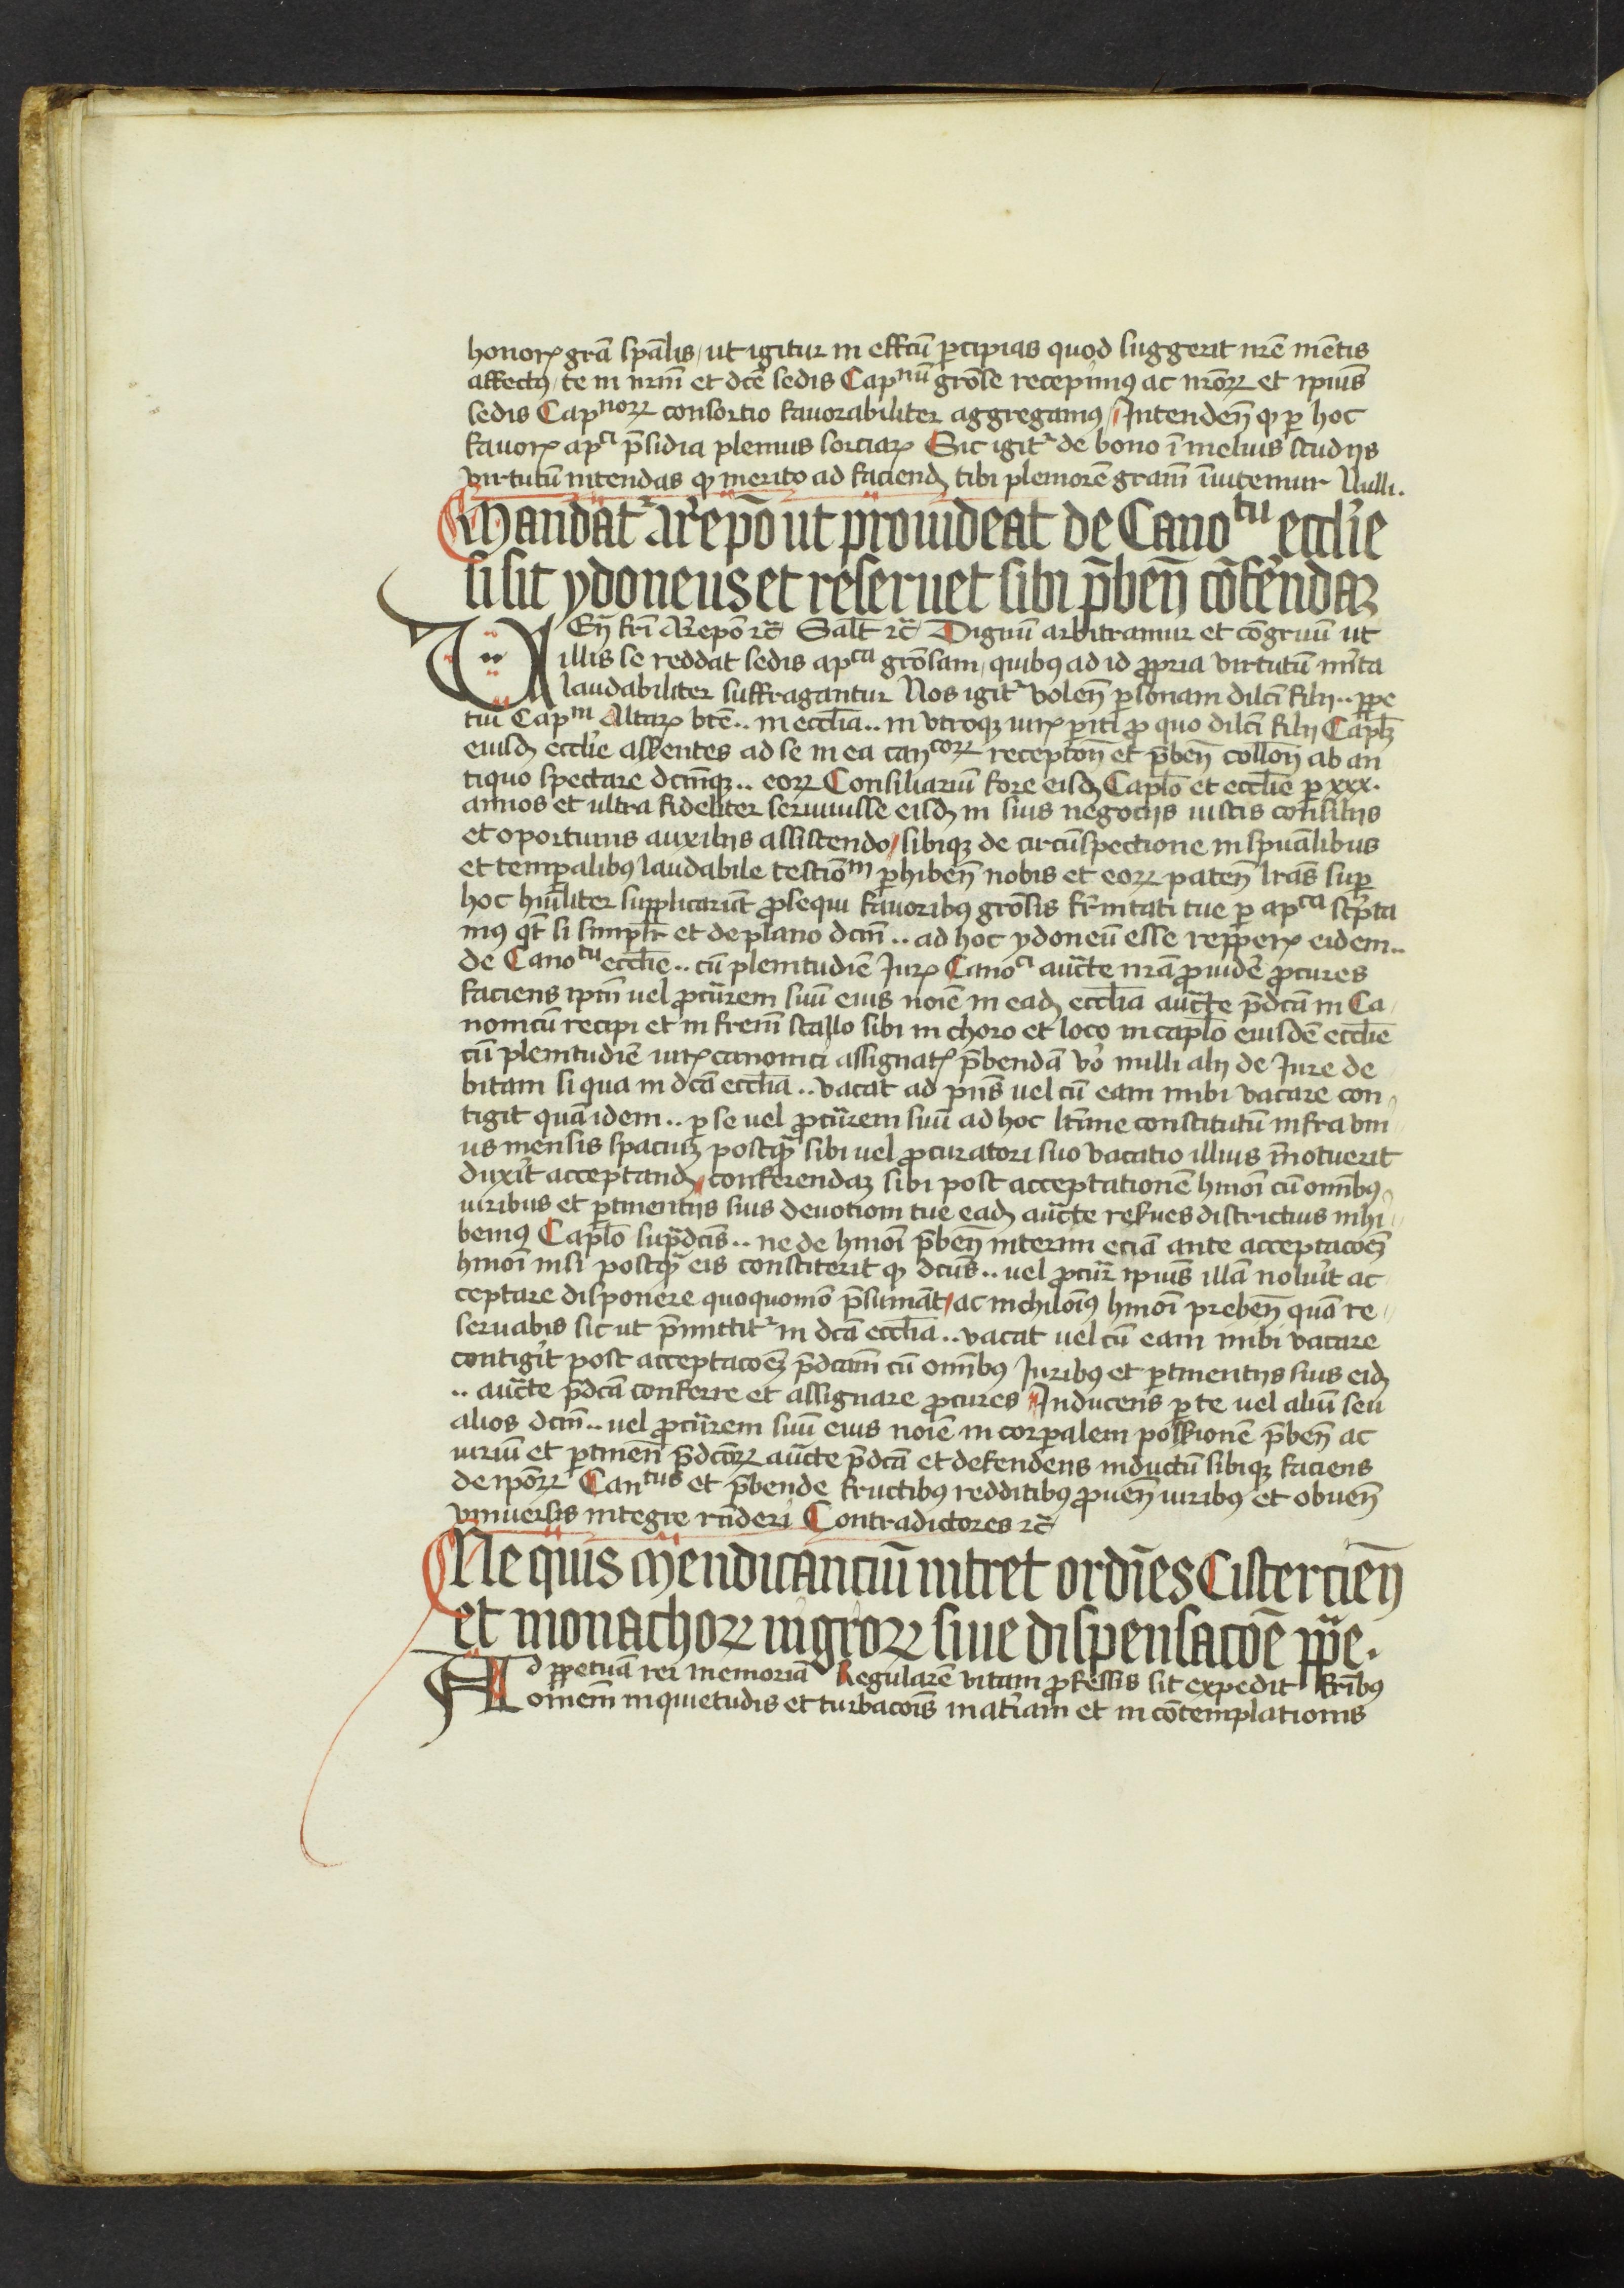 honorꝭ grā spālis / ut igitur in effcū ꝑcipias quod suggerit nrē mētis
affectꝰ / te in nrm̄ et dcē sedis Capnū grōse recepimꝰ ac nrōꝝ et ipiuˢ
sedis Capnoꝝ consortio fauorabiliter aggregamꝰ / Intendēn̄ ꝙ ꝑ hoc
fauorꝭ apci p̄sidia plenius sorciarꝭ Sic igitᷣ de bono ī melius studijs
virtutū intendas ꝙ merito ad faciend̄ tibi pleniorē gram̄ īuitemur Nulli.
Mandatᷣ Arepō ut prouideat de Canotu ecclīe
si sit ydoneus et reseruet sibi p̄ben̄ cōferendaꝫ
Uen̄ frī Arepō ⁊c̄ Salt̄ ⁊c̄ Dignū arbitramur et cōgruū ut
illis se reddat sedis apca grōsam / quibꝰ ad id ꝓpria virtutū mīta
laudabiliter suffragantur Nos igitᷣ volen̄ ꝑsonam dilci filij .. ꝑpe
tui Capni Altarꝭ btē .. in ecclīa .. in vtroqꝫ iurꝭ ꝑiti ꝓ quo dilci filij Capl̄ꝫ
eiusd̄ ecclīe asserentes ad se in ea cancoꝝ receptōn̄ et p̄ben̄ collōn̄ ab an
tiquo spectare dcm̄qꝫ .. eoꝝ Consiliariū fore eisd̄ Caplō et ecclīe ꝑ xxx.
annos et ultra fideliter seruiuisse eisd̄ in suis negocijs iustis consilijs
et oportunis auxilijs assistendo / sibiqꝫ de circūspectione in spūalibus
et temꝑalibꝰ laudabile testiōm ꝑhiben̄ nobis et eoꝝ paten̄ lrās suꝑ
hoc hūiliter supplicarūt ꝓsequi fauoribꝰ grōsis frnitati tue ꝑ apca scpta
mꝰ qt̄ si simplr̄ et de plano dcm̄ .. ad hoc ydoneū esse reppererꝭ eidem ..
de Canotu ecclīe .. cū plenitudīe Jurꝭ Canoci auc̄te nrā ꝓuidē ꝓcures
faciens ipm̄ uel ꝓcūrem suū eius noīe in ead̄ ecclīa auc̄te p̄dcā in Ca
nonicū recipi et in frem̄ stallo sibi in choro et loco in caplō eiusdē ecclīe
cū plenitudīe iurꝭ canonici assignatꝭ p̄bendā vo nulli alij de Jure de
bitam si qua in dcā ecclīa .. vacat ad pn̄s uel cū eam inibi vacare con
tigit quā idem .. ꝑ se uel ꝓcūrem suū ad hoc ltīme constitutū infra vni
us mensis spaciuꝫ postꝙ̄ sibi uel ꝓcuratori suo vacatio illius īnotuerit
duxīt acceptand̄ / conferendaꝫ sibi post acceptationē hmōi cū omībꝰ
iuribus et ꝑtinentijs suis deuotioni tue ead̄ auc̄te resues districtius inhi
bemꝰ Caplō sup̄dcis .. ne de hmōi p̄ben̄ interim eciā ante acceptacōeꝫ
hmōi nisi postꝙ̄ eis constiterit ꝙ dcūs .. uel ꝓcūr ipiuˢ illā noluīt ac
ceptare disponere quoquomō p̄sumāt / ac nichilōiꝰ hmōi preben̄ quā re
seruabis sic ut p̄mittitᷣ in dcā ecclīa .. vacat uel cū eam inibi vacare
contigīt post acceptacōeꝫ p̄dcam̄ cū omībꝰ Juribꝰ et ꝑtinentijs suis eid̄
.. auc̄te p̄dcā conferre et assignare ꝓcures Inducens ꝑ te uel aliū seu
alios dcm̄ .. uel ꝓcūrem suū eius noīe in corꝑalem possionē p̄ben̄ ac
iuriū et ꝑtinen̄ p̄dcōꝝ auc̄te p̄dcā et defendens inductū sibiqꝫ faciens
de ipōꝝ Cantus et p̄bende fructibꝰ redditibꝰ ꝓuen̄ iuribꝰ et obuen̄
vniuersis integre rn̄deri Contradictores ⁊c̄
Ne quis Mendicanciū intret ordīes Cistercien̄
et monachoꝝ nigroꝝ siue dispensacōe ppe.
Ad ꝑpetuā rei memoriā Regularē vitam ꝓfessis sit expedit frībꝰ
omēm inquietudīs et turbacōis matīam et in cōtemplationis